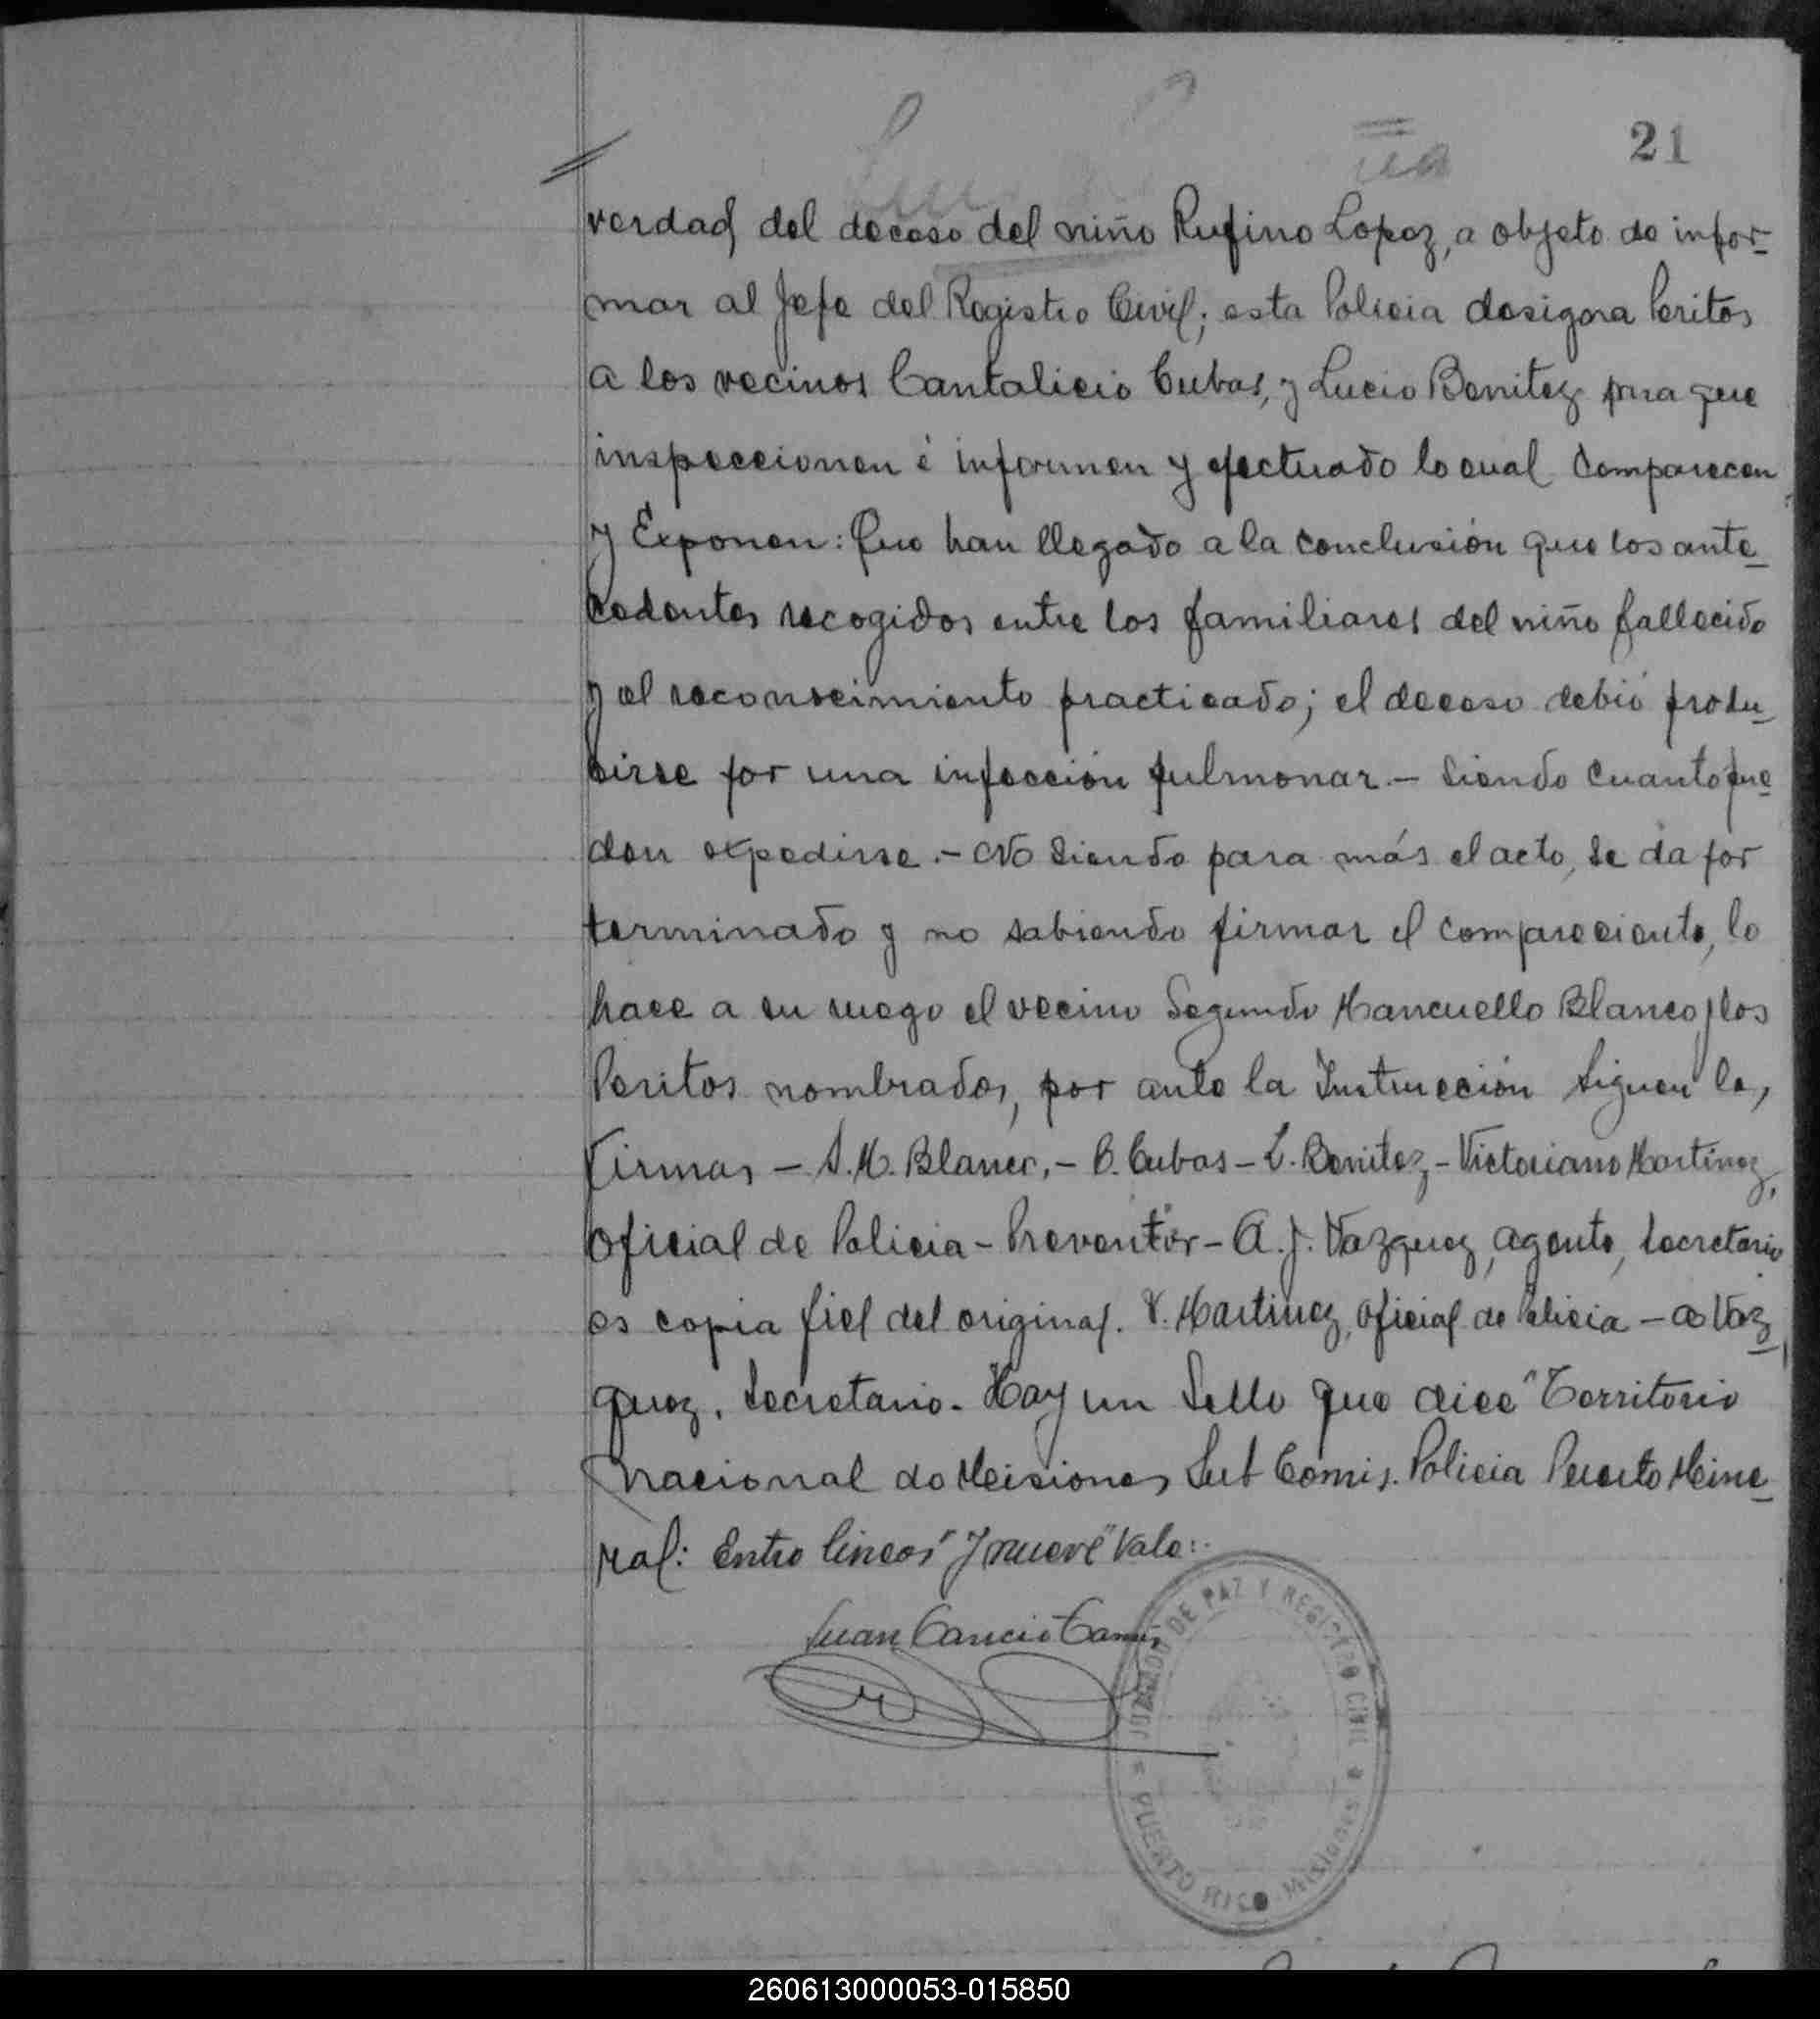 21
verdad, del deceso del niño Rufino Lopez, a objeto de infor-
mar al Jefe del Registro Civil; esta Policia designa Peritos
a los vecinos Cantalicio Cubas, y Lucio Benitez para que
inspeccionen é informen y efectuado lo cual comparecen
y Exponen: Que han llegado a la conclusión que los ante-
cedentes recogidos entre los familiares del niño fallecido
y el reconocimiento practicado; el deceso debió produ-
cirse por una infección pulmonar.- Siendo cuanto pue-
den expedirse.- No siendo para más el acto, se da por
terminado y no sabiendo firmar el compareciente, lo
hace a su ruego el vecino Segundo Mancuello Blanco y los
Peritos nombrados, por ante la Instrucción Siguen las
firmas - S.M. Blanco,- C. Cubas - L. Benitez - Victoriano Martinez,
Oficial de Policia - Preventor - A.J. Vazquez, agente, Secretario
es copia fiel del original. V. Martinez, Oficial de Policia - A Vaz-
quez, Secretario. Hay un Sello que dice "Territorio
Nacional de Misiones Sub Comis. Policia Puerto Mine-
ral: Entre lineas "y nueve" Vale:.
Juan Cancio
JUZGADO DE PAZ Y REGISTRO CIVIL
PUERTO RICO Misiones
260613000053-015850